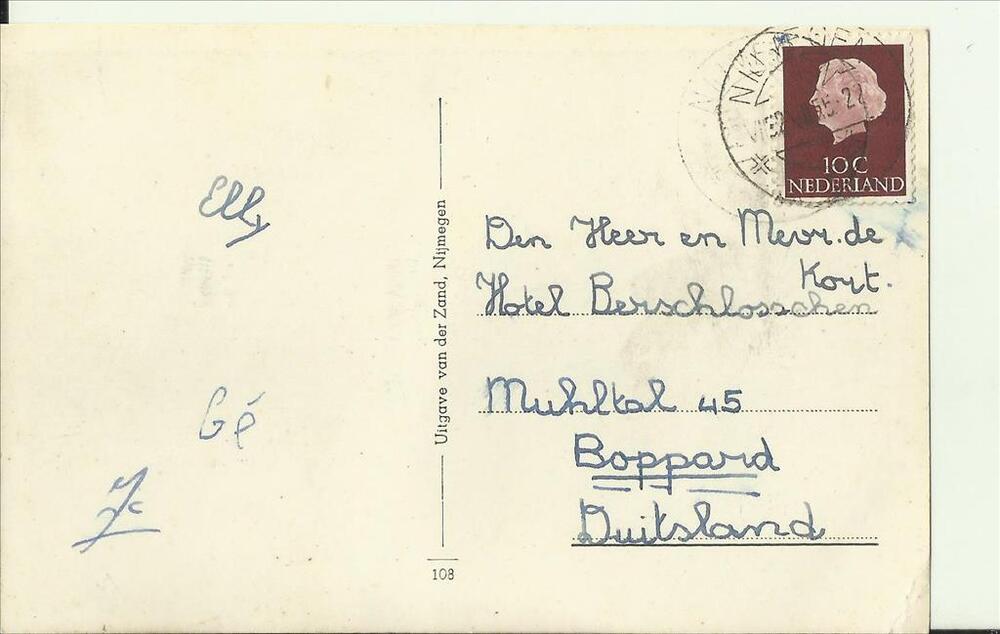 Elly
Gé
Uitgave van der Zand, Nijmegen
108
10 C
NEDERLAND
Den Heer en Mevr. de
Kort.
Hotel Berschlosschen
Muhltal 45
Boppard
Duitsland